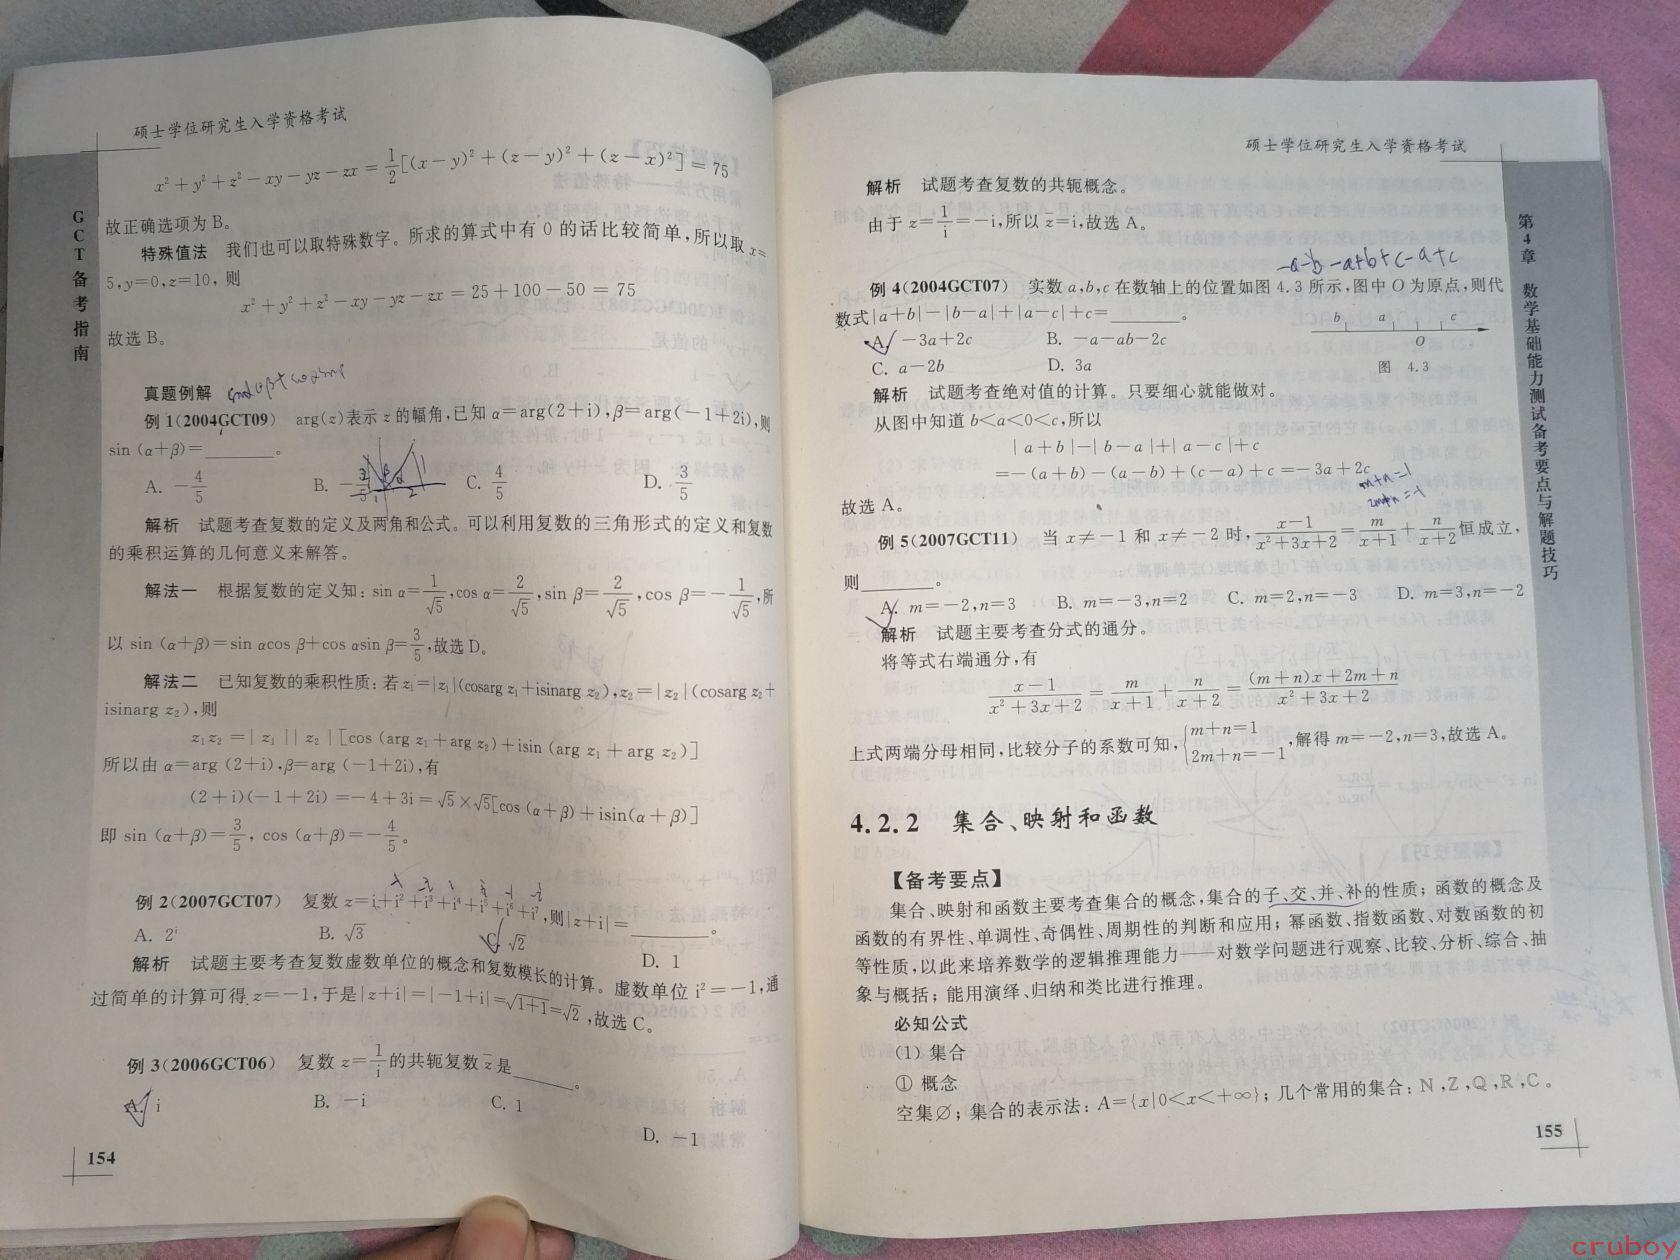 硕士学位研究生入学资格考试
x²+y²+z²-xy-yz-zx=\frac{1}{2}[(x-y)²+(z-y)²+(z-x)²]=75
故正确选项为 B。
特殊值法 我们也可以取特殊数字。所求的算式中有 0 的话比较简单,所以取 x=
5,y=0,z=10, 则
x²+y²+z²-xy-yz-zx=25+100-50=75
故选 B。
真题例解
例 1(2004GCT09) arg(z)表示 z 的幅角,已知 α=arg(2+i),β=arg(-1+2i),则
sin (α+β)=______。
A. -\frac{4}{5} B. -\frac{3}{5} C. \frac{4}{5} D. \frac{3}{5}
解析 试题考查复数的定义及两角和公式。可以利用复数的三角形式的定义和复数
的乘积运算的几何意义来解答。
解法一 根据复数的定义知: sin α=\frac{1}{√5},cos α=\frac{2}{√5},sin β=\frac{2}{√5},cos β=-\frac{1}{√5},所
以 sin (α+β)=sin αcos β+cos αsin β=\frac{3}{5},故选 D。
解法二 已知复数的乘积性质: 若 z₁=|z₁|(cosarg z₁+isinarg z₂),z₂=|z₂|(cosarg z₂+
isinarg z₂),则
z₁z₂=|z₁||z₂|[cos (arg z₁+arg z₂)+isin (arg z₁+arg z₂)]
所以由 α=arg (2+i),β=arg (-1+2i),有
(2+i)(-1+2i)=-4+3i=√5×√5[cos (α+β)+isin(α+β)]
即 sin (α+β)=\frac{3}{5}, cos (α+β)=-\frac{4}{5}。
例 2(2007GCT07) 复数 z=i+i²+i³+i⁴+i⁵+i⁶+i⁷,则|z+i|=______。
A. 2ⁱ B. √3 C. √2 D. 1
解析 试题主要考查复数虚数单位的概念和复数模长的计算。虚数单位 i²=-1,通
过简单的计算可得 z=-1,于是|z+i|=|-1+i|=√1+1=√2,故选 C。
例 3(2006GCT06) 复数 z=\frac{1}{i}的共轭复数 z̄ 是______。
A. i B. -i C. 1 D. -1
154
GCT备考指南
硕士学位研究生入学资格考试
解析 试题考查复数的共轭概念。
由于 z=\frac{1}{i}=-i,所以 z̄=i,故选 A。
-a-b-a+b+c-a+c
例 4(2004GCT07) 实数 a,b,c 在数轴上的位置如图 4.3 所示,图中 O 为原点,则代
数式|a+b|-|b-a|+|a-c|+c=______。
A. -3a+2c B. -a-ab-2c
C. a-2b D. 3a
b a c
O
图 4.3
解析 试题考查绝对值的计算。只要细心就能做对。
从图中知道 b<a<0<c,所以
|a+b|-|b-a|+|a-c|+c
=-(a+b)-(a-b)+(c-a)+c=-3a+2c
故选 A。
m+n=1
2m+n=-1
例 5(2007GCT11) 当 x≠-1 和 x≠-2 时,\frac{x-1}{x²+3x+2}=\frac{m}{x+1}+\frac{n}{x+2}恒成立,
则______。
A. m=-2,n=3 B. m=-3,n=2 C. m=2,n=-3 D. m=3,n=-2
解析 试题主要考查分式的通分。
将等式右端通分,有
\frac{x-1}{x²+3x+2}=\frac{m}{x+1}+\frac{n}{x+2}=\frac{(m+n)x+2m+n}{x²+3x+2}
上式两端分母相同,比较分子的系数可知,{m+n=1 2m+n=-1,解得 m=-2,n=3,故选 A。
4.2.2 集合、映射和函数
【备考要点】
集合、映射和函数主要考查集合的概念,集合的子、交、并、补的性质; 函数的概念及
函数的有界性、单调性、奇偶性、周期性的判断和应用; 幂函数、指数函数、对数函数的初
等性质,以此来培养数学的逻辑推理能力——对数学问题进行观察、比较、分析、综合、抽
象与概括; 能用演绎、归纳和类比进行推理。
必知公式
(1) 集合
① 概念
空集∅; 集合的表示法: A={x|0<x<+∞}; 几个常用的集合: N,Z,Q,R,C。
155
第4章 数学基础能力测试备考要点与解题技巧
cruboy